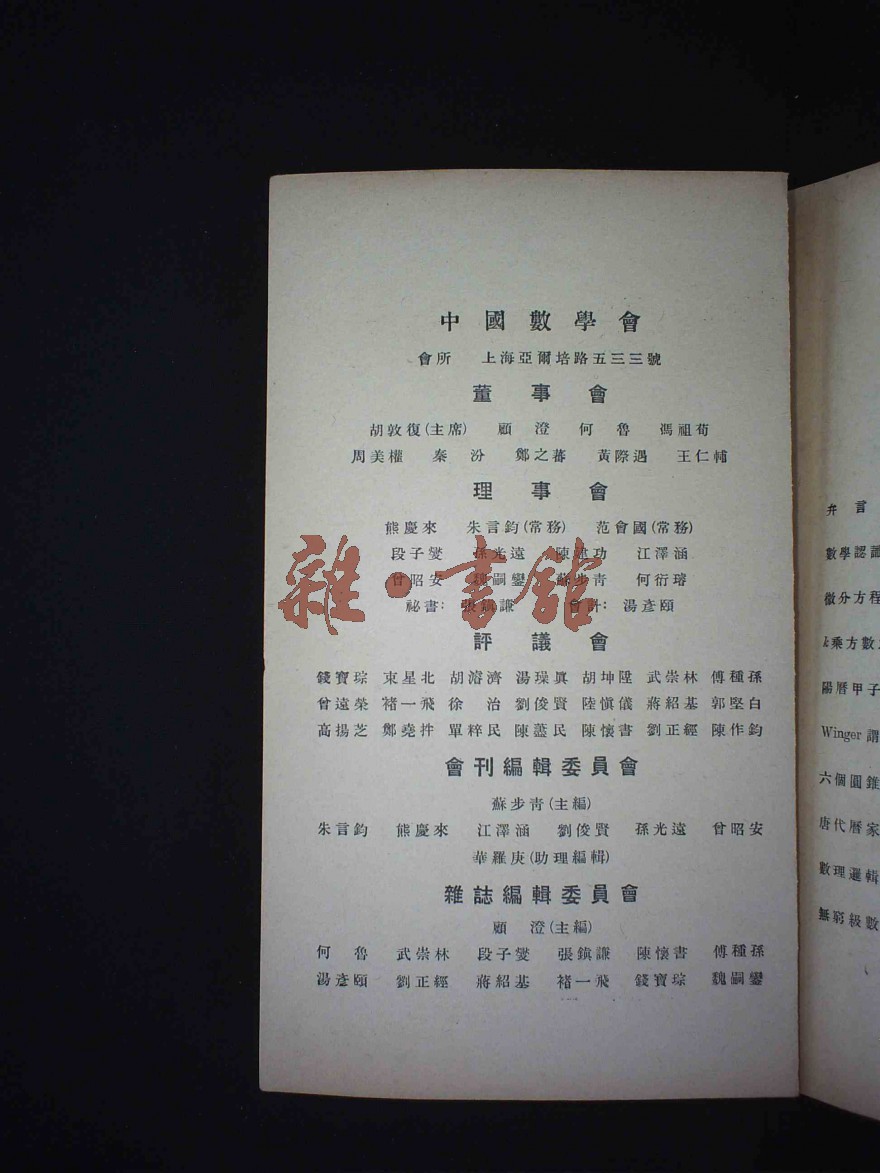 中國數學會
會所 上海亞爾培路五三三號
董事會
胡敦復(主席) 顧澄 何魯 馮祖荀
周美權 秦汾 鄭之蕃 黃際遇 王仁輔
理事會
熊慶來 朱言鈞(常務) 范會國(常務)
段子燮 孫光遠 陳建功 江澤涵
曾昭安 魏嗣鑾 蘇步青 何衍璿
祕書: 張鎮謙 會計: 湯彥頤
雜·書館
評議會
錢寶琮 束星北 胡濬濟 湯璪眞 胡坤陞 武崇林 傅種孫
曾遠榮 褚一飛 徐治 劉俊賢 陸愼儀 蔣紹基 郭堅白
高揚芝 鄭堯拌 單粹民 陳藎民 陳懷書 劉正經 陳作鈞
會刊編輯委員會
蘇步靑(主編)
朱言鈞 熊慶來 江澤涵 劉俊賢 孫光遠 曾昭安
華羅庚(助理編輯)
雜誌編輯委員會
顧澄(主編)
何魯 武崇林 段子燮 張鎮謙 陳懷書 傅種孫
湯彥頤 劉正經 蔣紹基 褚一飛 錢寶琮 魏嗣鑾
弁言
數學認識
微分方程
乘方數
陽曆甲子
Winger 謂
六個圓錐
唐代曆家
數理邏輯
無窮級數